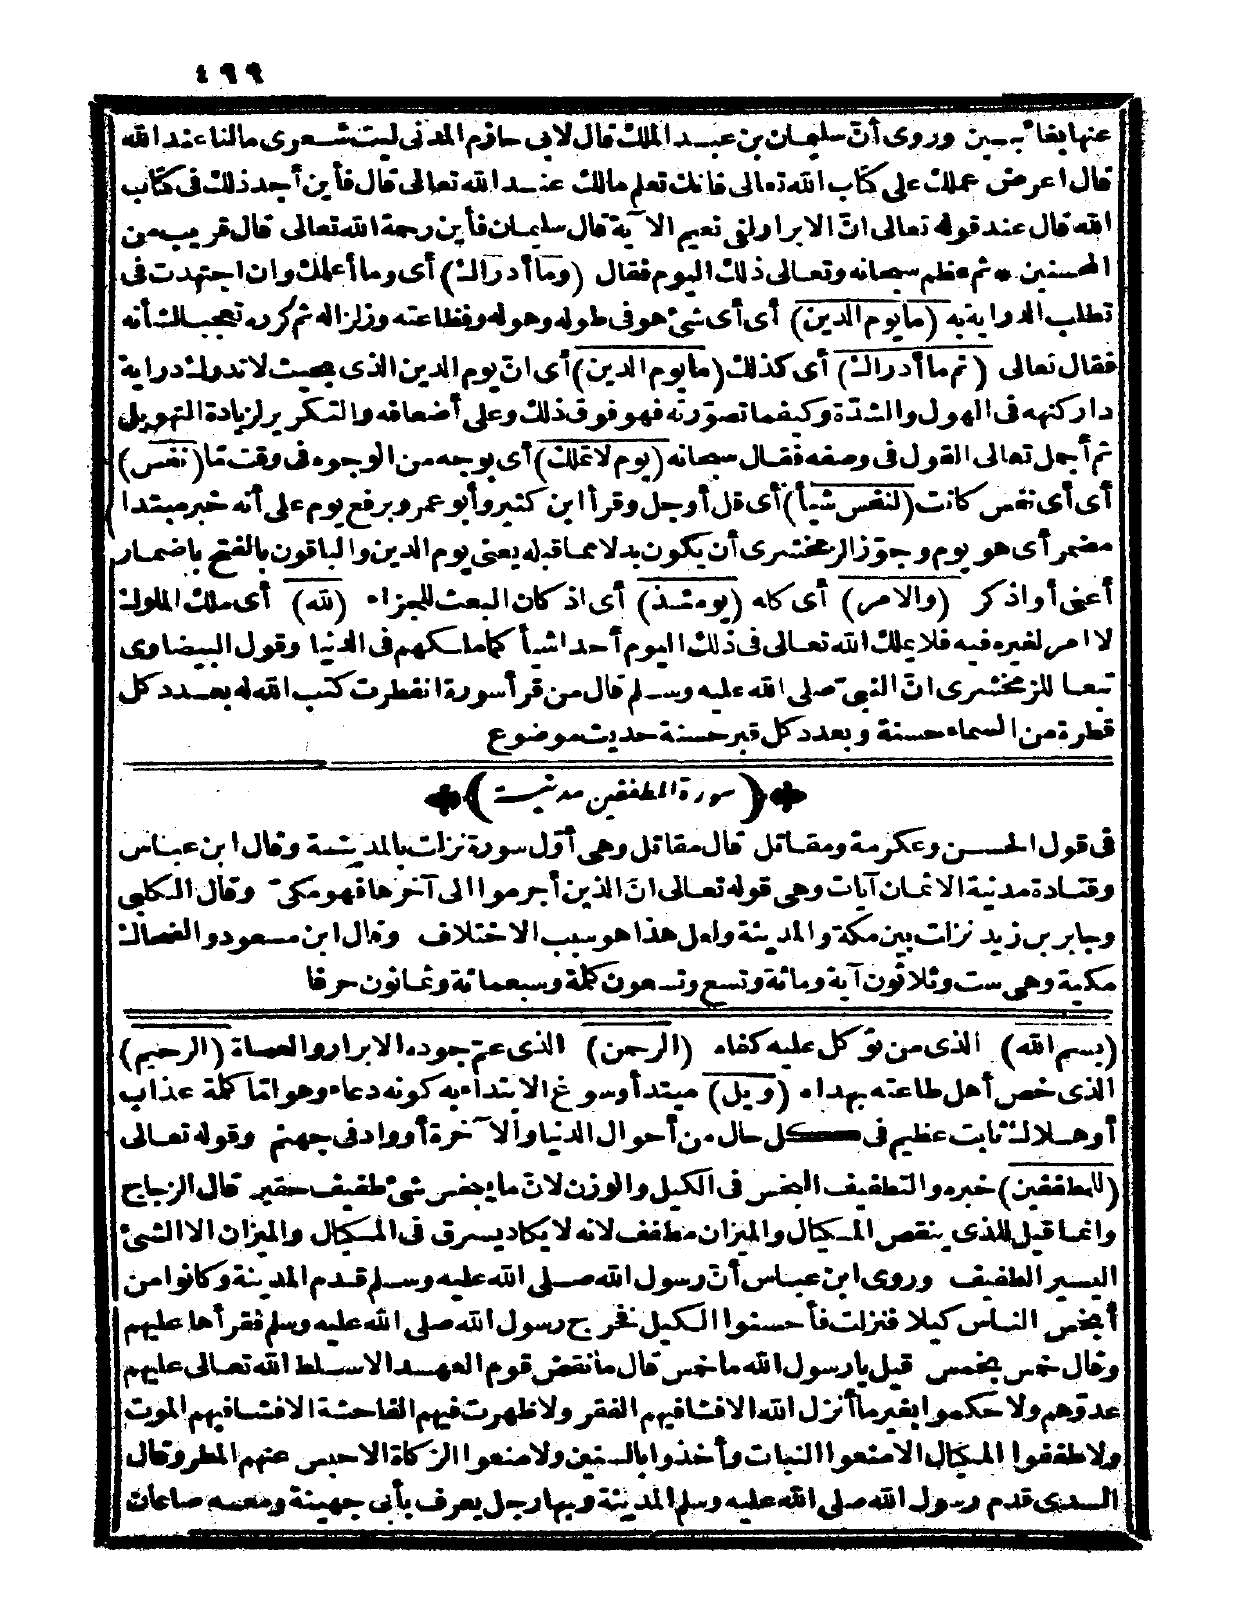 ٤٩٩
عنها بغائبين وروى أنّ سليمان بن عبد الملك قال لابى حازم المدنى ليت شعرى مالنا عند الله
قال اعرض عملك على كتاب الله تعالى فانك تعلم مالك عند الله تعالى قال فأين أجد ذلك فى كتاب
الله قال عند قوله تعالى انّ الابرار لفى نعيم الآية قال سليمان فأين رحمة الله تعالى قال قريب من
المحسنين * ثم عظم سبحانه وتعالى ذلك اليوم فقال (وما أدراك) أى وما أعلمك وان اجتهدت فى
تطلب الدراية به (ما يوم الدين) أى أى شئ هو فى طوله وهوله وفظاعته وزلزاله ثم كرره تعجيبا لشأنه
فقال تعالى (ثم ما أدراك) أى كذلك (ما يوم الدين) أى انّ يوم الدين الذى بحيث لا تدرك دراية
دار كنهه فى الهول والشدّة وكيفما تصوّرته فهو فوق ذلك وعلى أضعافه والتكرير لزيادة التهويل
ثم أجمل تعالى القول فى وصفه فقال سبحانه (يوم لا تملك) أى بوجه من الوجوه فى وقت مّا (نفس)
أى أى نفس كانت (لنفس شيأ) أى قل أوجل وقرأ ابن كثير وأبو عمرو برفع يوم على أنه خبر مبتدا
مضمر أى هو يوم وجوّز الزمخشرى أن يكون بدلا مما قبله يعنى يوم الدين والباقون بالفتح باضمار
أعنى أو اذكر (والامر) أى كله (يومئذ) أى اذ كان البعث للجزاء (لله) أى ملك الملوك
لا امر لغيره فيه فلا يملك الله تعالى فى ذلك اليوم أحدا شيأ كما ملكهم فى الدنيا وقول البيضاوى
تبعا للزمخشرى انّ النبىّ صلى الله عليه وسلم قال من قرأ سورة انفطرت كتب الله له بعدد كل
قطرة من السماء حسنة وبعدد كل قبر حسنة حديث موضوع
(سورة المطففين مدنية)
فى قول الحسن وعكرمة ومقاتل قال مقاتل وهى أوّل سورة نزلت بالمدينة وقال ابن عباس
وقتادة مدنية الاثمان آيات وهى قوله تعالى انّ الذين أجرموا الى آخرها فهو مكىّ وقال الكلبى
وجابر بن زيد نزلت بين مكة والمدينة ولعل هذا هو سبب الاختلاف وقال ابن مسعود والضحاك
مكية وهى ست وثلاثون آية ومائة وتسع وتسعون كلمة وسبعمائة وثمانون حرفا
(بسم الله) الذى من توكل عليه كفاه (الرحمن) الذى عمّ جوده الابرار والعصاة (الرحيم)
الذى خص أهل طاعته بهداه (ويل) مبتدأ وسوغ الابتداء به كونه دعاء وهو امّا كلمة عذاب
أو هلاك ثابت عظيم فى كل حال من أحوال الدنيا والآخرة أو واد فى جهنم وقوله تعالى
(للمطففين) خبره والتطفيف البخس فى الكيل والوزن لانّ ما يبخس شئ طفيف حقير قال الزجاج
وانما قيل للذى ينقص المكيال والميزان مطفف لانه لا يكاد يسرق فى المكيال والميزان الا الشئ
اليسير الطفيف وروى ابن عباس أنّ رسول الله صلى الله عليه وسلم قدم المدينة وكانوا من
أبخس الناس كيلا فنزلت فأحسنوا الكيل فخرج رسول الله صلى الله عليه وسلم فقرأها عليهم
وقال خمس بخمس قيل يا رسول الله ما خمس قال ما نقض قوم العهد الا سلط الله تعالى عليهم
عدوّهم ولا حكموا بغير ما أنزل الله الا فشا فيهم الفقر ولا ظهرت فيهم الفاحشة الا فشا فيهم الموت
ولا طففوا المكيال الا منعوا النبات وأخذوا بالسنين ولا منعوا الزكاة الا حبس عنهم المطر وقال
السدى قدم رسول الله صلى الله عليه وسلم المدينة وبها رجل يعرف بأبى جهينة ومعه صاعان